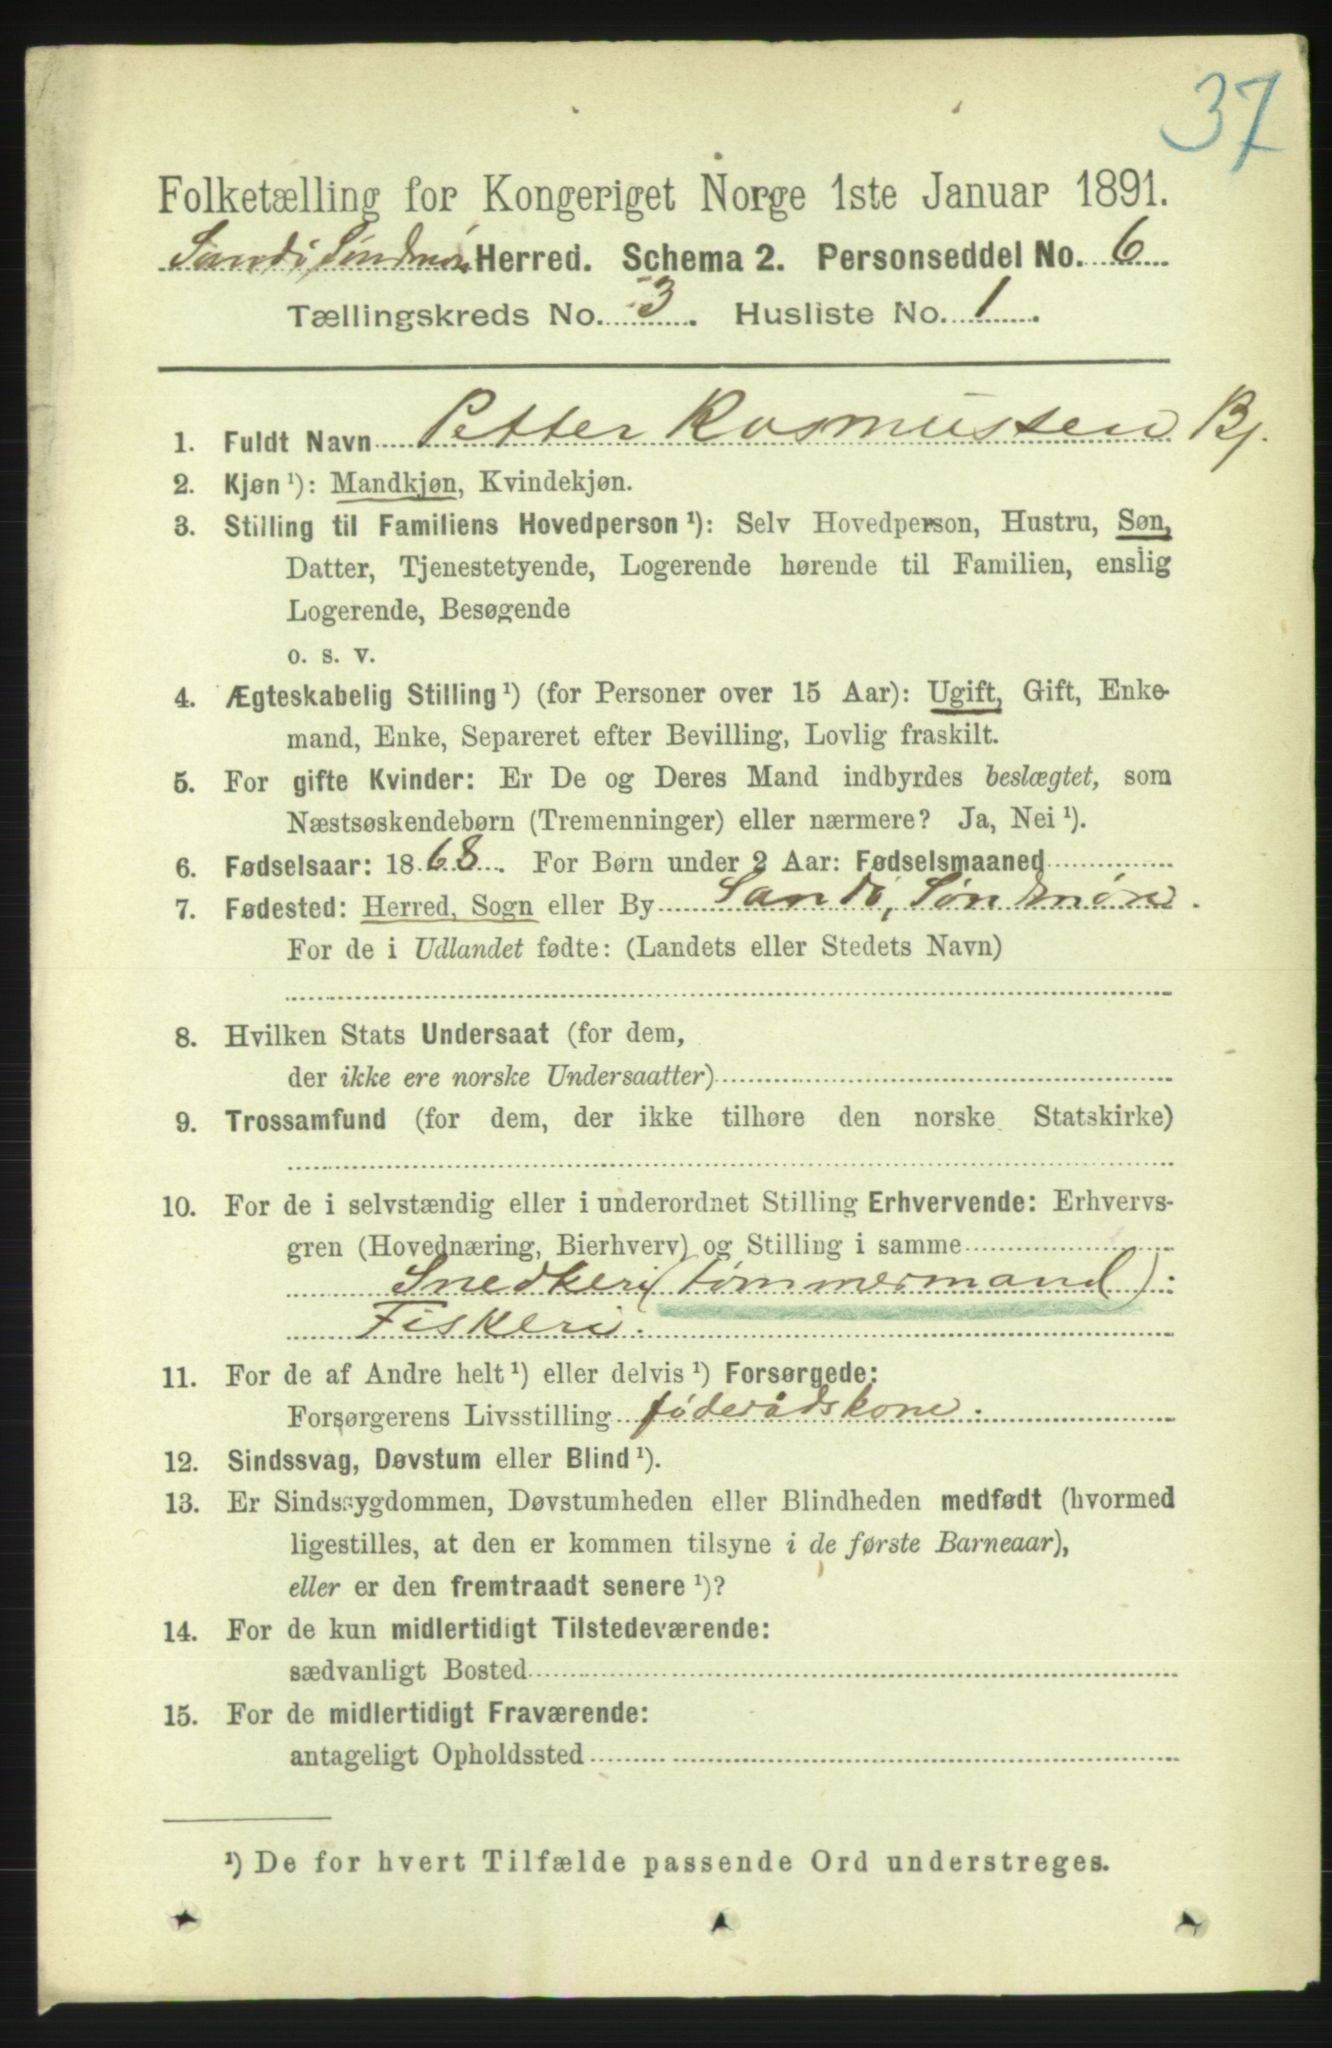 37
Folketælling for Kongeriget Norge 1ste Januar 1891.
Sande Søndmøre Herred. Schema 2. Personseddel No. 6
Tællingskreds No. 3. Husliste No. 1.
1. Fuldt Navn Petter Rasmussen Bj.
2. Kjøn ¹): Mandkjøn, Kvindekjøn.
3. Stilling til Familiens Hovedperson ¹): Selv Hovedperson, Hustru, Søn,
Datter, Tjenestetyende, Logerende hørende til Familien, enslig
Logerende, Besøgende
o. s. v.
4. Ægteskabelig Stilling ¹) (for Personer over 15 Aar): Ugift, Gift, Enke-
mand, Enke, Separeret efter Bevilling, Lovlig fraskilt.
5. For gifte Kvinder: Er De og Deres Mand indbyrdes beslægtet, som
Næstsøskendebørn (Tremenninger) eller nærmere? Ja, Nei ¹).
6. Fødselsaar: 1868. For Børn under 2 Aar: Fødselsmaaned
7. Fødested: Herred, Sogn eller By Sande, Søndmøre.
For de i Udlandet fødte: (Landets eller Stedets Navn)
8. Hvilken Stats Undersaat (for dem,
der ikke ere norske Undersaatter)
9. Trossamfund (for dem, der ikke tilhøre den norske Statskirke)
10. For de i selvstændig eller i underordnet Stilling Erhvervende: Erhvervs-
gren (Hovednæring, Bierhverv) og Stilling i samme
Snedkeri (tømmermand):
Fiskeri.
11. For de af Andre helt ¹) eller delvis ¹) Forsørgede:
Forsørgerens Livsstilling føderådskone.
12. Sindssvag, Døvstum eller Blind ¹).
13. Er Sindssygdommen, Døvstumheden eller Blindheden medfødt (hvormed
ligestilles, at den er kommen tilsyne i de første Barneaar),
eller er den fremtraadt senere ¹)?
14. For de kun midlertidigt Tilstedeværende:
sædvanligt Bosted
15. For de midlertidigt Fraværende:
antageligt Opholdssted
¹) De for hvert Tilfælde passende Ord understreges.